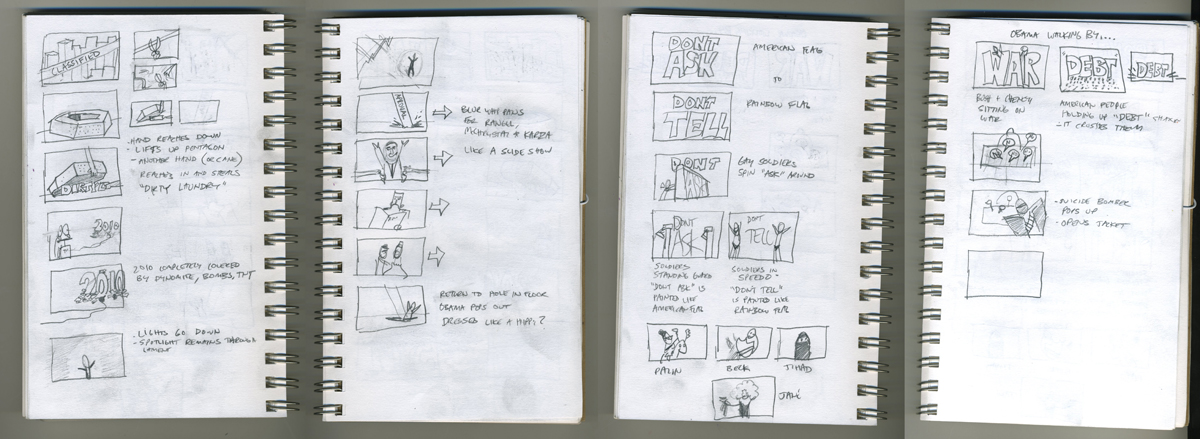 CLASSIFIED
-HAND REACHES DOWN
- LIFTS UP PENTAGON
- ANOTHER HAND (OR CANE)
REACHES IN AND STEALS
"DIRTY LAUNDRY"
2010
2010 COMPLETELY COVERED
BY DYNOMITE, BOMBS, TNT
2010
-LIGHTS GO DOWN
- SPOTLIGHT REMAINS THROUGH
BLUR WHI PANS
FOR RANGEL,
MCCHRYSTAL & KARZAI
LIKE A SLIDE SHOW
RETURN TO HOLE IN FLOOR
OBAMA POPS OUT
DRESSED LIKE A HIPPY?
DONT
ASK
AMERICAN FLAG
TO
DONT
TELL
RAINBOW FLAG
DONT
ASK
GAY SOLDIERS
SPIN "ASK" AROUND
DONT
ASK
DONT
TELL
SOLDIERS
STANDING GUARD
"DONT ASK" IS
PAINTED LIKE
AMERICAN FLAG
SOLDIERS IN
SPEEDO-
"DON'T TELL"
IS PAINTED LIKE
RAINBOW FLAG
PALIN
BECK
JIHAD
OBAMA WALKING BY....
WAR
DEBT
DEBT
BUSH + CHENEY
SITTING ON
WAR
AMERICAN PEOPLE
HOLDING UP "DEBT"
- IT CRUSHES THEM
-SUICIDE BOMBER
POPS UP
- OPENS JACKET